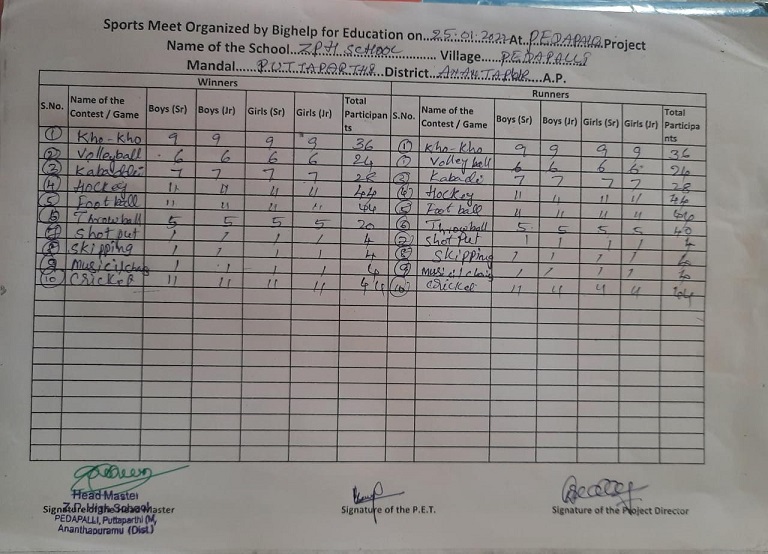 Sports Meet Organized by Bighelp for Education on...25.01.2022 At...PEDAPALLI Project
Name of the School...ZPH SCHOOL............... Village......PEDAPALLI
Mandal......PUTTAPARTHI..District...ANANTAPUR...A.P.
Winners Runners
S.No. Name of the Contest / Game Boys (Sr) Boys (Jr) Girls (Sr) Girls (Jr) Total Participants S.No. Name of the Contest / Game Boys (Sr) Boys (Jr) Girls (Sr) Girls (Jr) Total Participants
1 Kho-Kho 9 9 9 9 36 1 Kho-Kho 9 9 9 9 36
2 Volleyball 6 6 6 6 24 Volleyball 6 6 6 6 24
3 Kabaddi 7 7 7 7 28 3 Kabadi 7 7 7 7 28
4 Hockey 11 11 11 11 44 4 Hockey 11 11 11 11 44
5 Football 11 11 11 11 44 5 Football 11 11 11 11 44
6 Throwball 5 5 5 5 20 6 Throwball 5 5 5 5
7 Shot put 1 1 1 1 4 7 Shot put 1 1 1 1 4
8 Skipping 1 1 1 1 4 8 Skipping 1 1 1 1
9 1 1 1 1 4 9 1 1 1 1
10 Cricket 11 11 11 11 44 10 Cricket 11 11 11 11 44
Head Master
Z.P. High School
Signature of the Head Master Signature of the P.E.T. Signature of the Project Director
PEDAPALLI, Puttaparthi (M,
Ananthapuramu (Dist.)